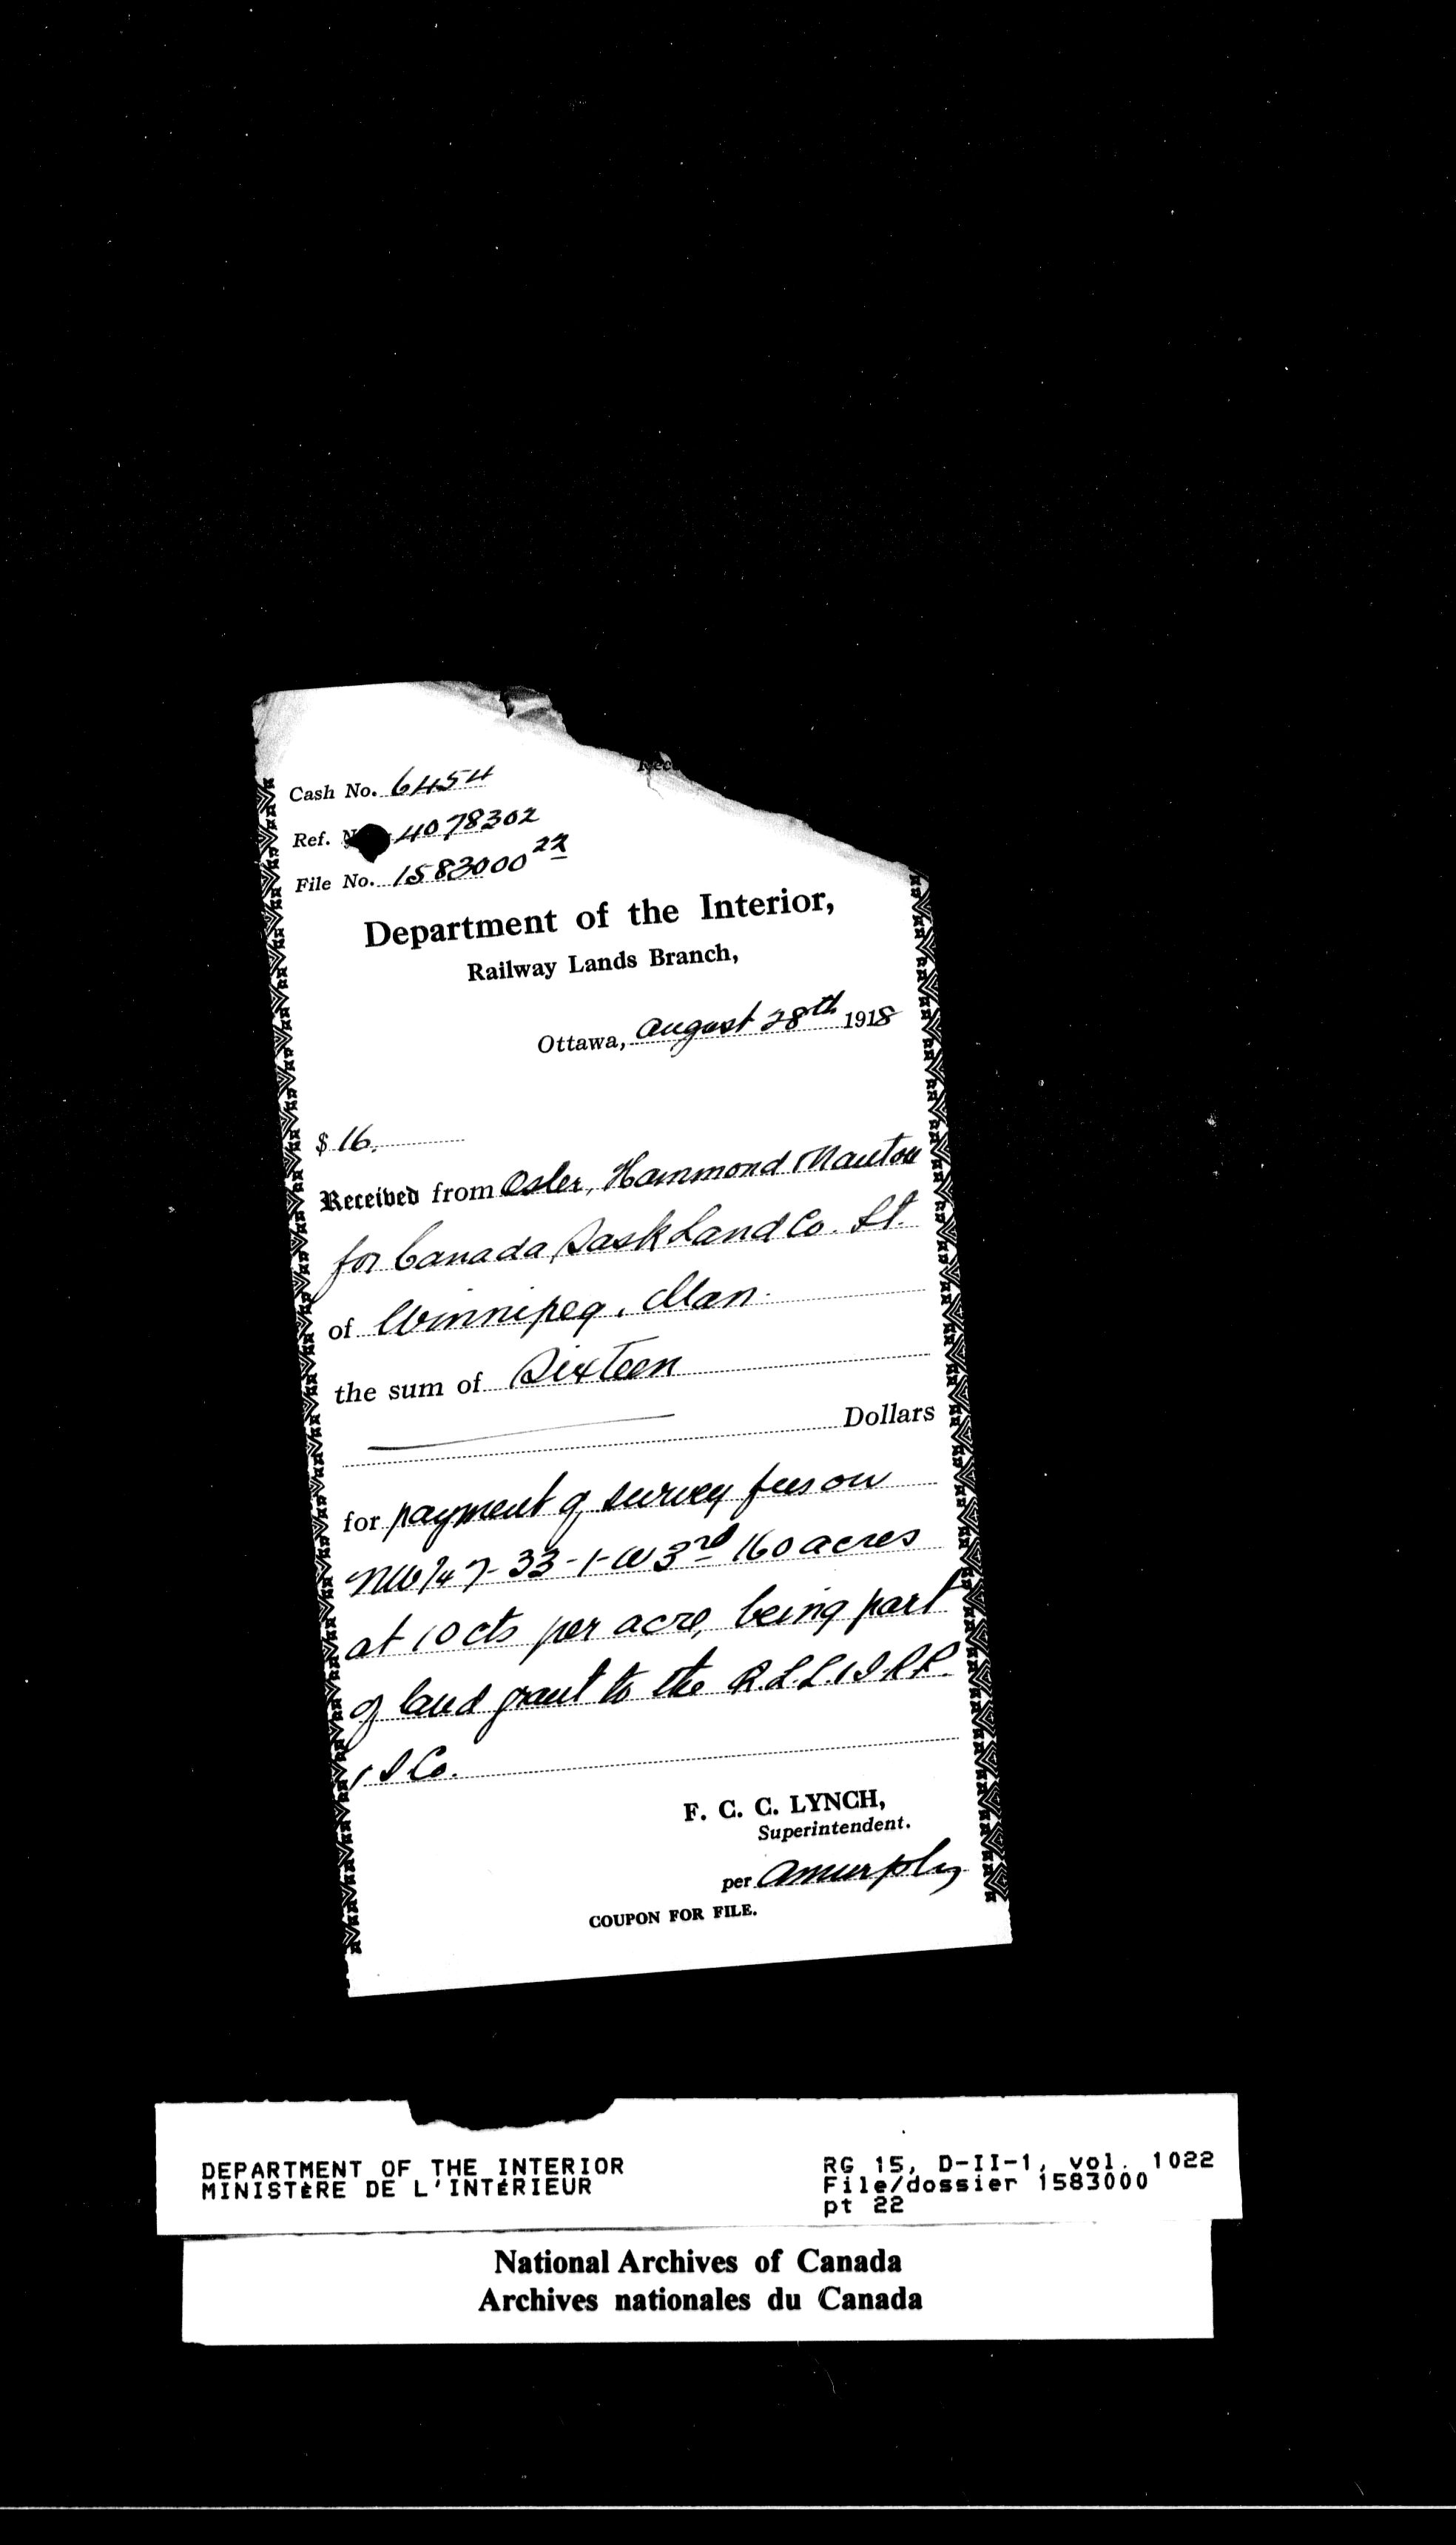 Cash No. 6454
Ref. 4078302
File No. 1583000 22
Department of the Interior,
Railway Lands Branch,
Ottawa, August 28th 1918
$ 16.
Received from Osler, Hammond & Nanton
for Canada Sask Land Co. Lt.
of Winnipeg, Man.
the sum of Sixteen
Dollars
for payment of survey fees on
NW 1/4 7-33-1-W 3rd 160 acres
at 10 cts per acre, being part
of land grant to the Q.L.L. & S.R.R.
& S Co.
F. C. C. LYNCH,
Superintendent.
per AMurphy
COUPON FOR FILE.
DEPARTMENT OF THE INTERIOR
MINISTÈRE DE L'INTÉRIEUR
RG 15, D-II-1, vol. 1022
File/dossier 1583000
pt 22
National Archives of Canada
Archives nationales du Canada